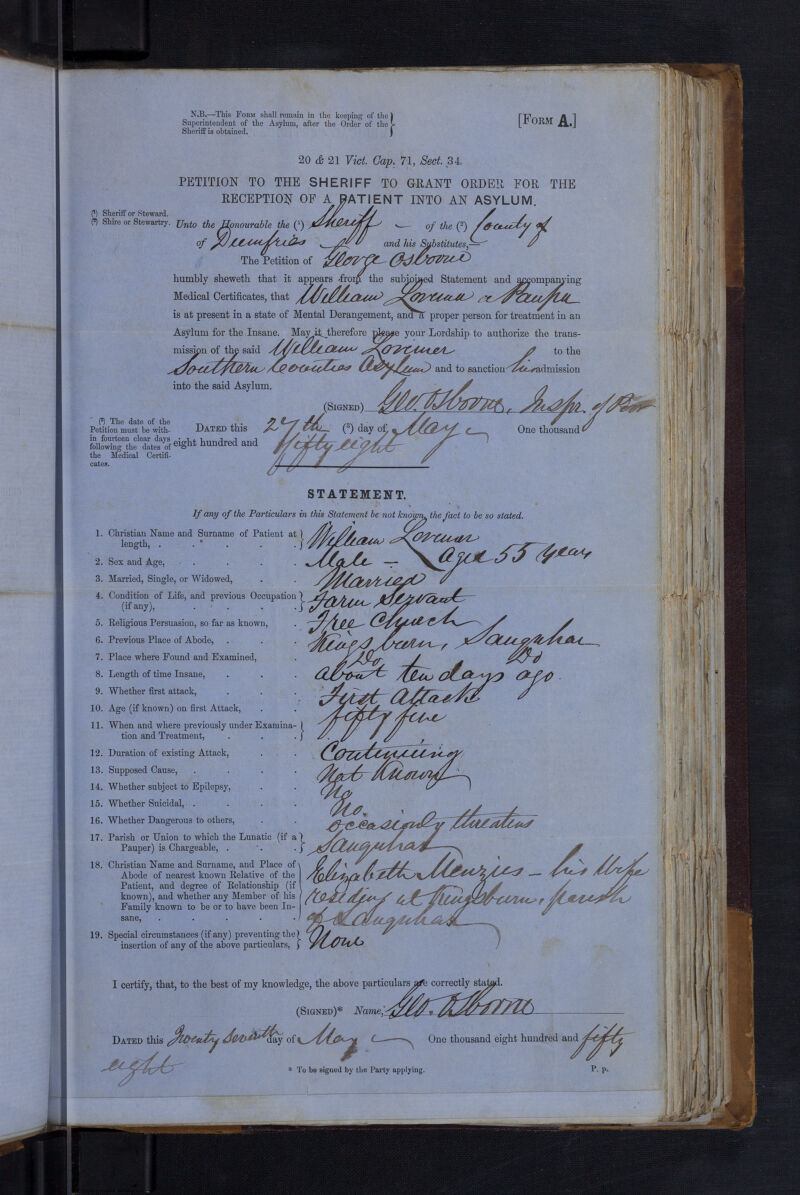 N.B.—This Form shall remain in the keeping of the
Superintendent of the Asylum, after the Order of the
Sheriff is obtained.
[Form A.]
20 & 21 Vict. Cap. 71, Sect. 34.
PETITION TO THE SHERIFF TO GRANT ORDER FOR THE
RECEPTION OF A PATIENT INTO AN ASYLUM.
(1) Sheriff or Steward.
(2) Shire or Stewartry.
Unto the Honourable the (1) Sheriff — of the (2) County of
of Dumfries and his Substitutes,—
The Petition of George Osborne
humbly sheweth that it appears from the subjoined Statement and accompanying
Medical Certificates, that William Lorimer a Pauper
is at present in a state of Mental Derangement, and a proper person for treatment in an
Asylum for the Insane. May it therefore please your Lordship to authorize the trans-
mission of the said William Lorimer to the
Southern Counties Asylum and to sanction his admission
into the said Asylum.
(Signed) Geo. Osborne, Inspr. of Poor
(3) The date of the
Petition must be with-
in fourteen clear days
following the dates of
the Medical Certifi-
cates.
Dated this 27th (3) day of May One thousand
eight hundred and fifty eight
STATEMENT.
If any of the Particulars in this Statement be not known, the fact to be so stated.
1. Christian Name and Surname of Patient at length, . William Lorimer
2. Sex and Age, Male — Aged 55 years
3. Married, Single, or Widowed, Married
4. Condition of Life, and previous Occupation (if any), Farm Servant
5. Religious Persuasion, so far as known, Free Church
6. Previous Place of Abode, Kingsburn, Sanquhar
7. Place where Found and Examined, Do Do
8. Length of time Insane, about ten days ago.
9. Whether first attack, First Attack
10. Age (if known) on first Attack, fifty five
11. When and where previously under Examina-
tion and Treatment,
12. Duration of existing Attack, Continuing
13. Supposed Cause, Not Known
14. Whether subject to Epilepsy, No
15. Whether Suicidal, No.
16. Whether Dangerous to others, occasionly threatens
17. Parish or Union to which the Lunatic (if a
Pauper) is Chargeable, Sanquhar
18. Christian Name and Surname, and Place of
Abode of nearest known Relative of the
Patient, and degree of Relationship (if
known), and whether any Member of his
Family known to be or to have been In-
sane,
Elizabeth Menzies — his Wife
residing at Kingsburn, parish
of Sanquhar
19. Special circumstances (if any) preventing the
insertion of any of the above particulars, None
I certify, that, to the best of my knowledge, the above particulars are correctly stated.
(Signed)* Name, Geo. Osborne
Dated this Twenty Seventh day of May One thousand eight hundred and fifty
eight
* To be signed by the Party applying.
P. p.